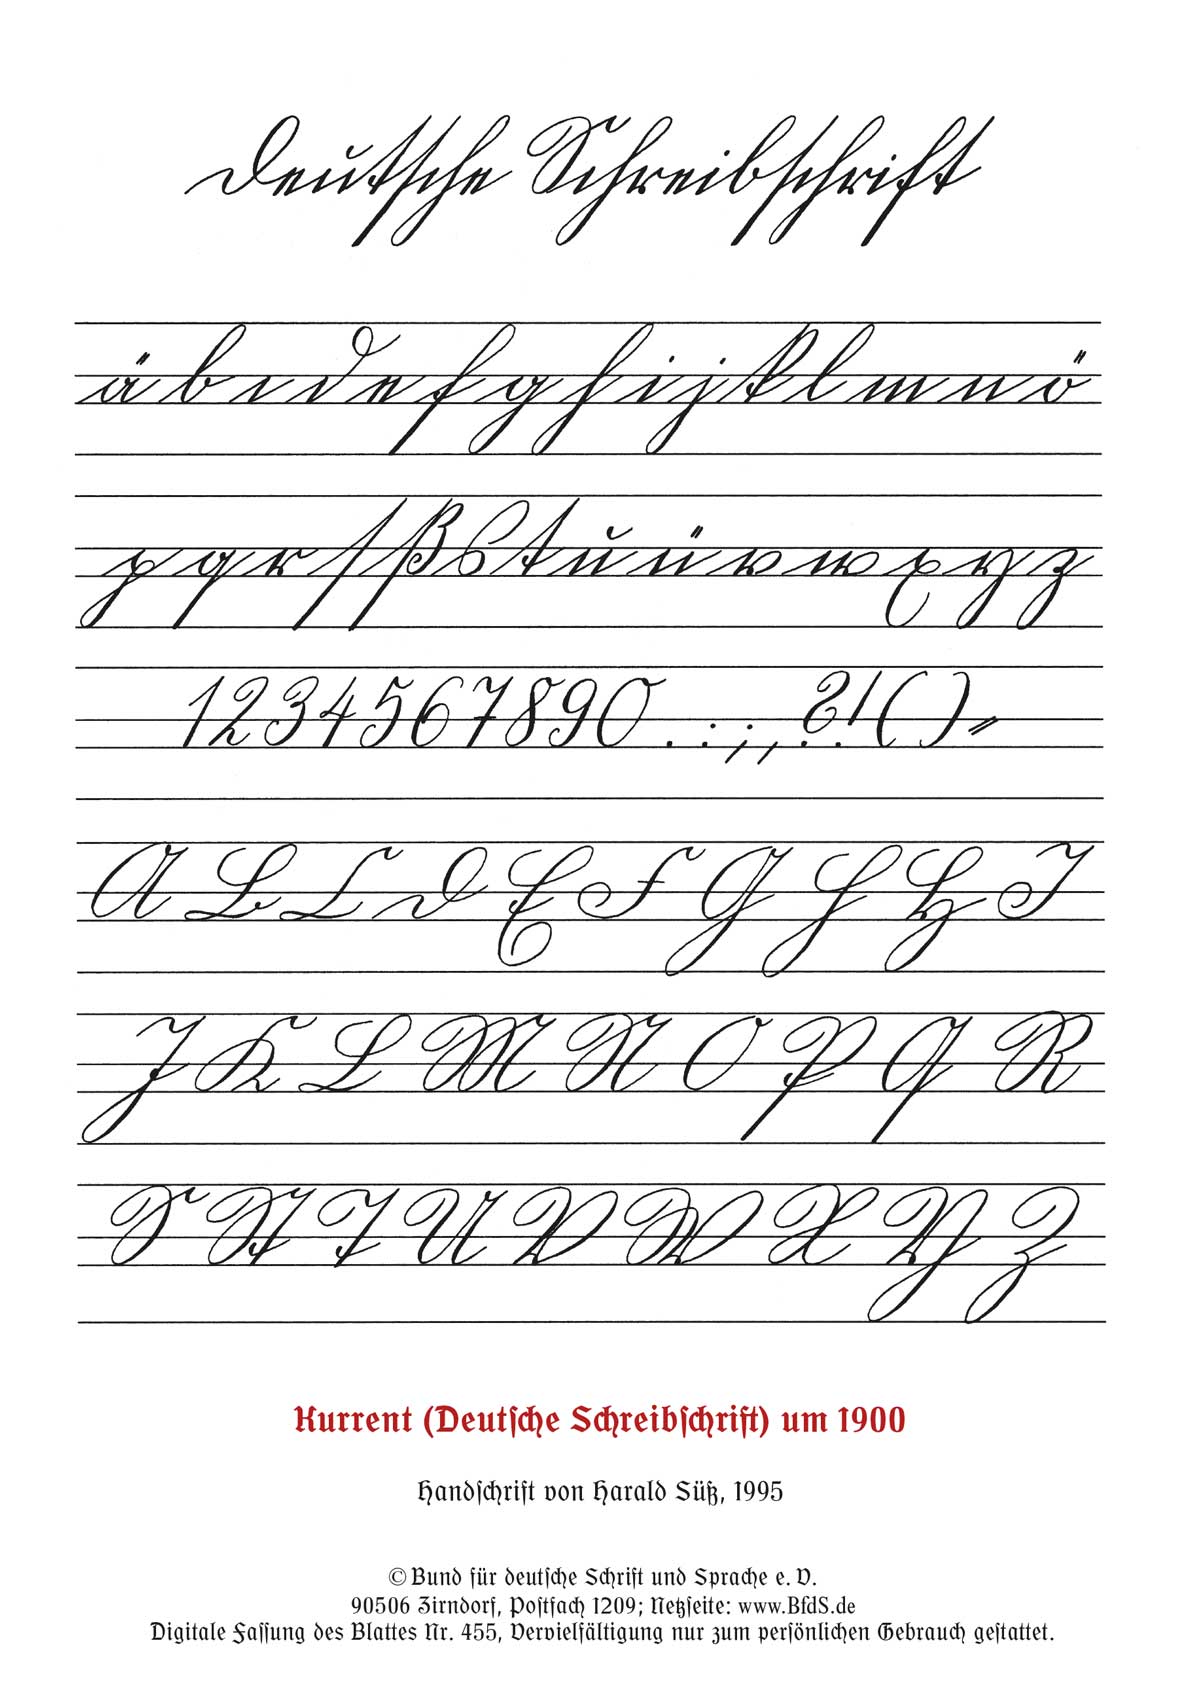 Deutſche Schreibſchrift
ä b c d e f g h i j k l m n ö
p q r ſ ß s t u ü v w x y z
1 2 3 4 5 6 7 8 9 0 . : ; , . ? ! ( ) =
A B C D E F G H H I
J K L M N O P Q R
S St T U V W X Y Z
Kurrent (Deutſche Schreibſchrift) um 1900
Handſchrift von Harald Süß, 1995
© Bund für deutſche Schrift und Sprache e. V.
90506 Zirndorf, Poſtfach 1209; Netzſeite: www.BfdS.de
Digitale Faſſung des Blattes Nr. 455, Vervielfältigung nur zum perſönlichen Gebrauch geſtattet.